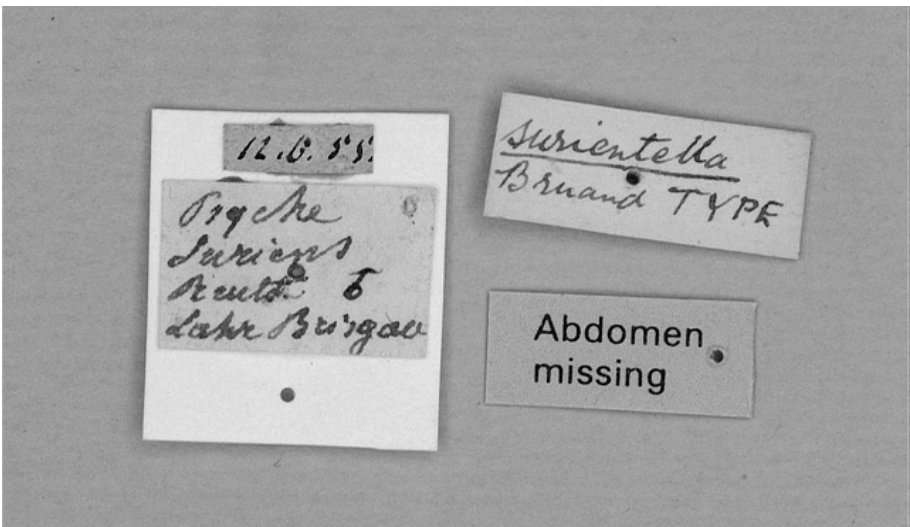 12.6.55.
Psyche
Suriens
Reutti 6
Lahr Brisgau
surientella
Bruand TYPE
Abdomen
missing